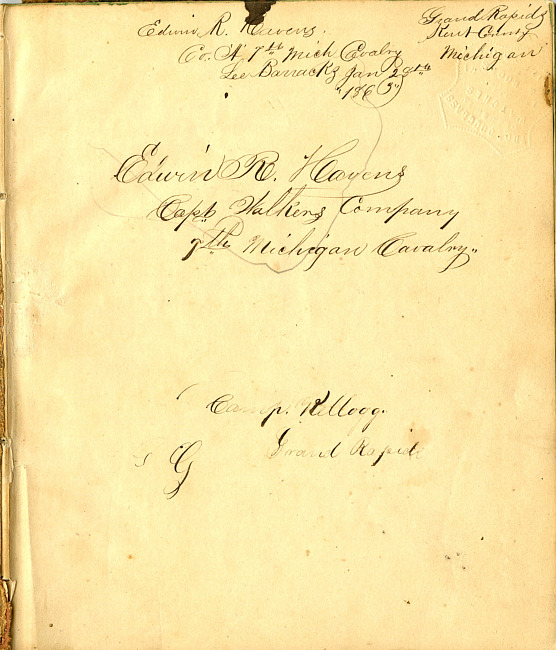 Edwin R. Havens.
Co. A, 7th Mich Cvalry
Lee Barracks Jan 28th
186
Grand Rapids
Kent County
Michigan
Edwin R. Havens
Capt Walkers Company
7th Michigan Cavalry.
Camp. Kellogg.
Grand Rapids
G